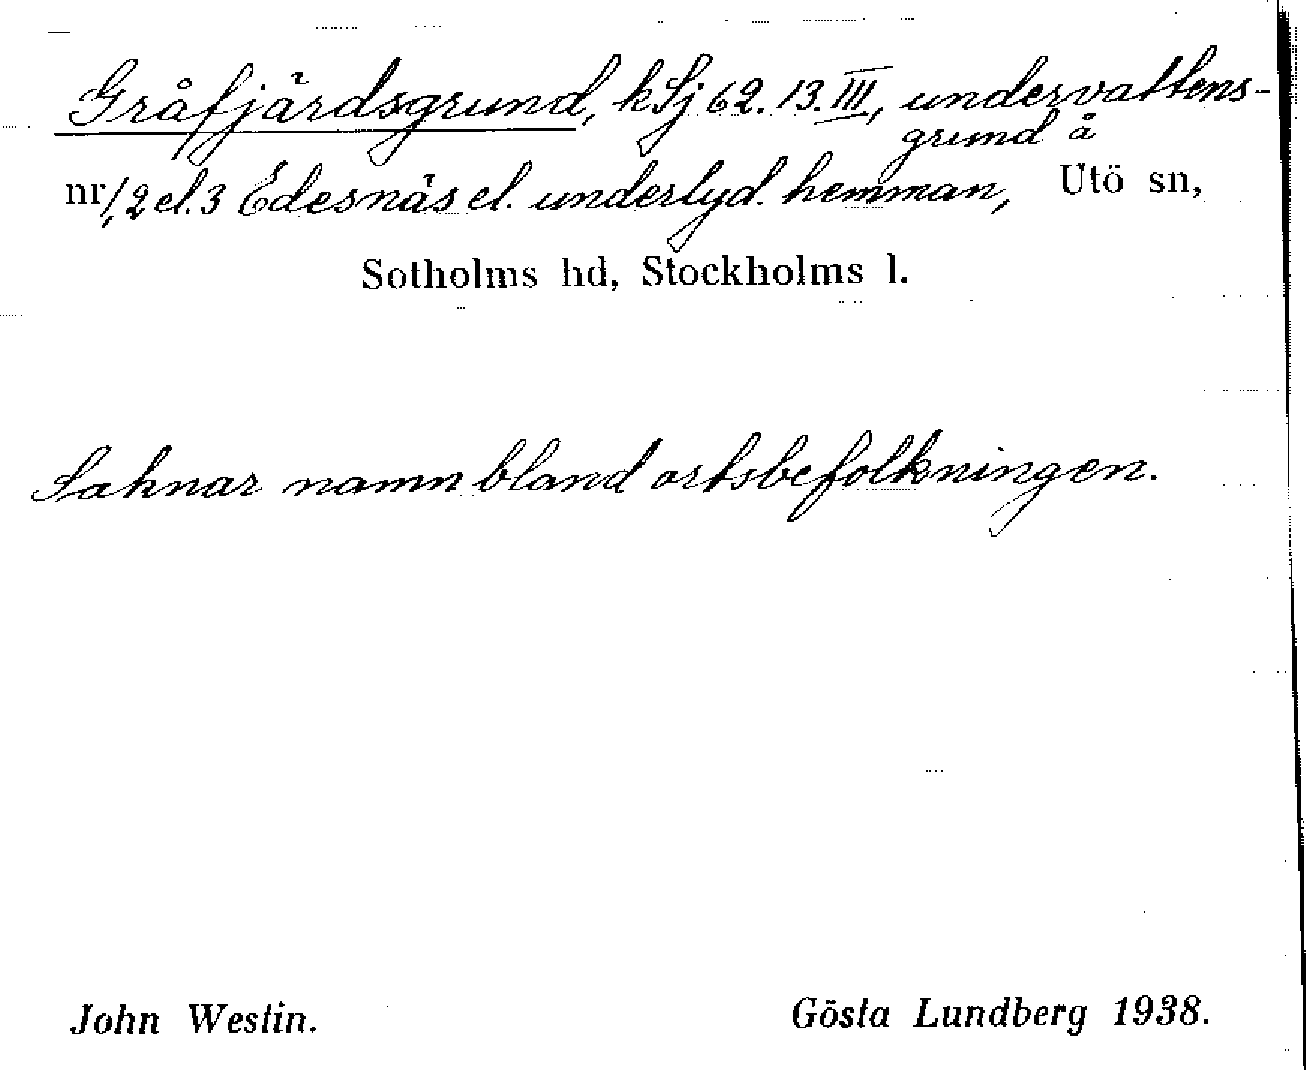 Gråfjärdsgrund, kSj 62. 13. III, undervattens-
grund å
nr 1, 2 el. 3 Edesnäs el. underlyd. hemman, Utö sn,
Sotholms hd, Stockholms l.
Saknar namn bland ortsbefolkningen.
John Westin. Gösta Lundberg 1938.